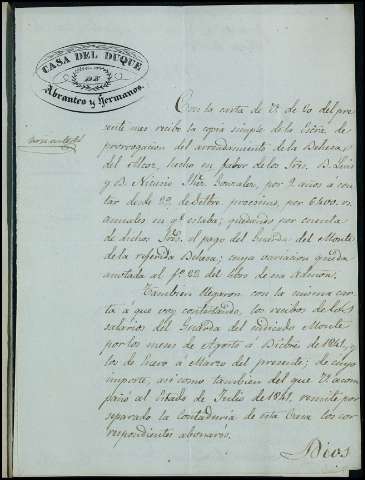 CASA DEL DUQUE
DE
Abrantes y Hermanos.
Con la carta de V. de 20 del pre-
sente mes recibo la copia simple de la Escra de
prorrogacion del arrendamiento de la Dehesa
del Alcor, hecho en favor de los Sres. D. Luis
y D. Nicasio Gonzalez, por 2 años a con-
tar desde 29 de Setbre procsimo, por 6400 rs.
anuales en qe. estaba; quedando por cuenta
de dichos Sres. el pago del Guarda del Monte
de la referida Dehesa; cuya variacion queda
anotada al fo. 22 del libro de esa Admon.
Tambien llegaron con la misma car-
ta á que voy contestando, los recibos de los
salarios del Guarda del indicado Monte
por los meses de Agosto á Dicbre de 1841, y
los de Enero á Marzo del presente; de cuyo
importe, asi como tambien del que V. acom-
pañó al Estado de Julio de 1841, remite por
separado la contaduria de esta Casa los cor-
respondientes abonarés.
Dios